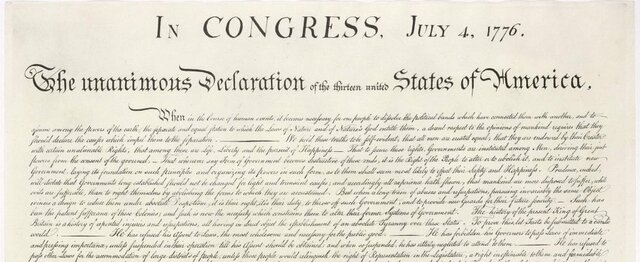 IN CONGRESS, JULY 4, 1776.
The unanimous Declaration of the thirteen united States of America,
When in the Course of human events, it becomes necessary for one people to dissolve the political bands which have connected them with another, and to
assume among the powers of the earth, the separate and equal station to which the Laws of Nature and of Nature's God entitle them, a decent respect to the opinions of mankind requires that they
should declare the causes which impel them to the separation. — We hold these truths to be self-evident, that all men are created equal, that they are endowed by their Creator
with certain unalienable Rights, that among these are Life, Liberty and the pursuit of Happiness. — That to secure these rights, Governments are instituted among Men, deriving their just
powers from the consent of the governed, — That whenever any Form of Government becomes destructive of these ends, it is the Right of the People to alter or to abolish it, and to institute new
Government, laying its foundation on such principles and organizing its powers in such form, as to them shall seem most likely to effect their Safety and Happiness. Prudence, indeed,
will dictate that Governments long established should not be changed for light and transient causes; and accordingly all experience hath shewn, that mankind are more disposed to suffer, while
evils are sufferable, than to right themselves by abolishing the forms to which they are accustomed. But when a long train of abuses and usurpations, pursuing invariably the same Object
evinces a design to reduce them under absolute Despotism, it is their right, it is their duty, to throw off such Government, and to provide new Guards for their future security. — Such has
been the patient sufferance of these Colonies; and such is now the necessity which constrains them to alter their former Systems of Government. The history of the present King of Great
Britain is a history of repeated injuries and usurpations, all having in direct object the establishment of an absolute Tyranny over these States. To prove this, let Facts be submitted to a candid
world. — He has refused his Assent to Laws, the most wholesome and necessary for the public good. — He has forbidden his Governors to pass Laws of immediate
and pressing importance, unless suspended in their operation till his Assent should be obtained; and when so suspended, he has utterly neglected to attend to them. — He has refused to
pass other Laws for the accommodation of large districts of people, unless those people would relinquish the right of Representation in the Legislature, a right inestimable to them and formidable